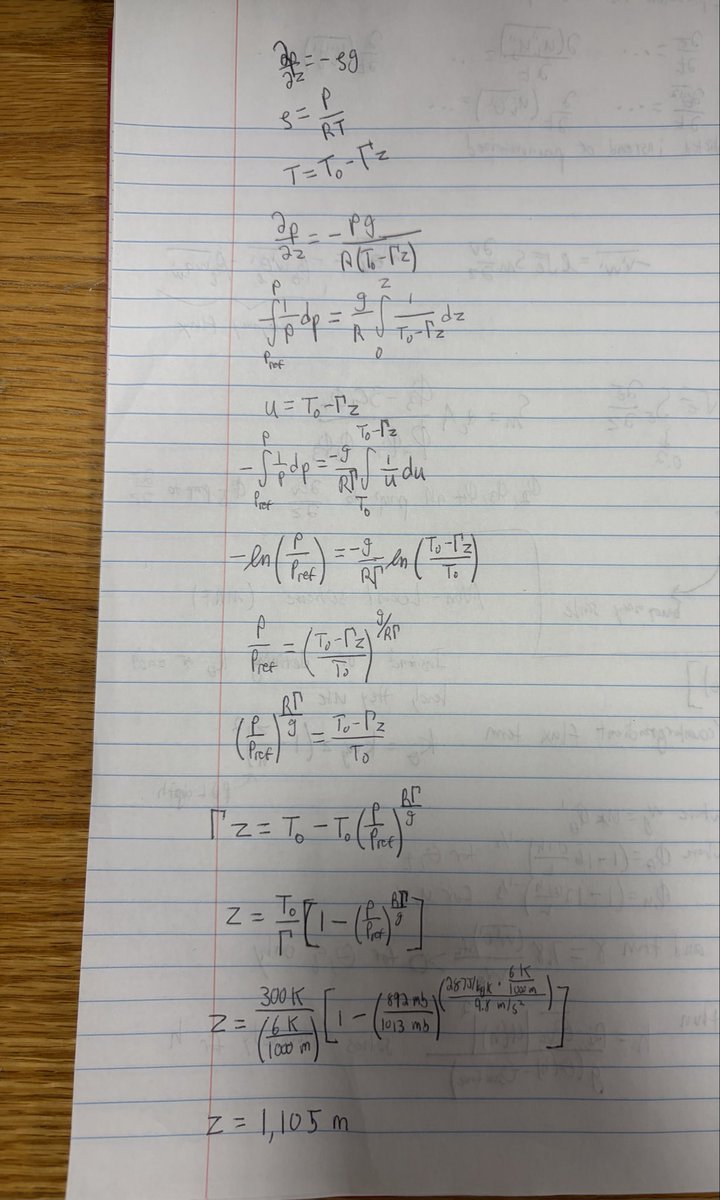 ∂p/∂z = -ρg
ρ = P/RT
T = T₀ - Γz
∂p/∂z = - Pg/R(T₀-Γz)
∫_{Pref}^{P} 1/P dp = g/R ∫_{0}^{z} 1/(T₀-Γz) dz
u = T₀ - Γz
-∫_{Pref}^{P} 1/P dp = -g/RΓ ∫_{T₀}^{T₀-Γz} 1/u du
-ln(P/Pref) = -g/RΓ ln((T₀-Γz)/T₀)
P/Pref = ((T₀-Γz)/T₀)^{g/RΓ}
(P/Pref)^{RΓ/g} = (T₀-Γz)/T₀
Γz = T₀ - T₀(P/Pref)^{RΓ/g}
z = T₀/Γ [1 - (P/Pref)^{RΓ/g}]
z = 300K/(6K/1000m) [1 - (892mb/1013mb)^{(287J/kgK · 6K/1000m / 9.8 m/s²)}]
z = 1,105 m